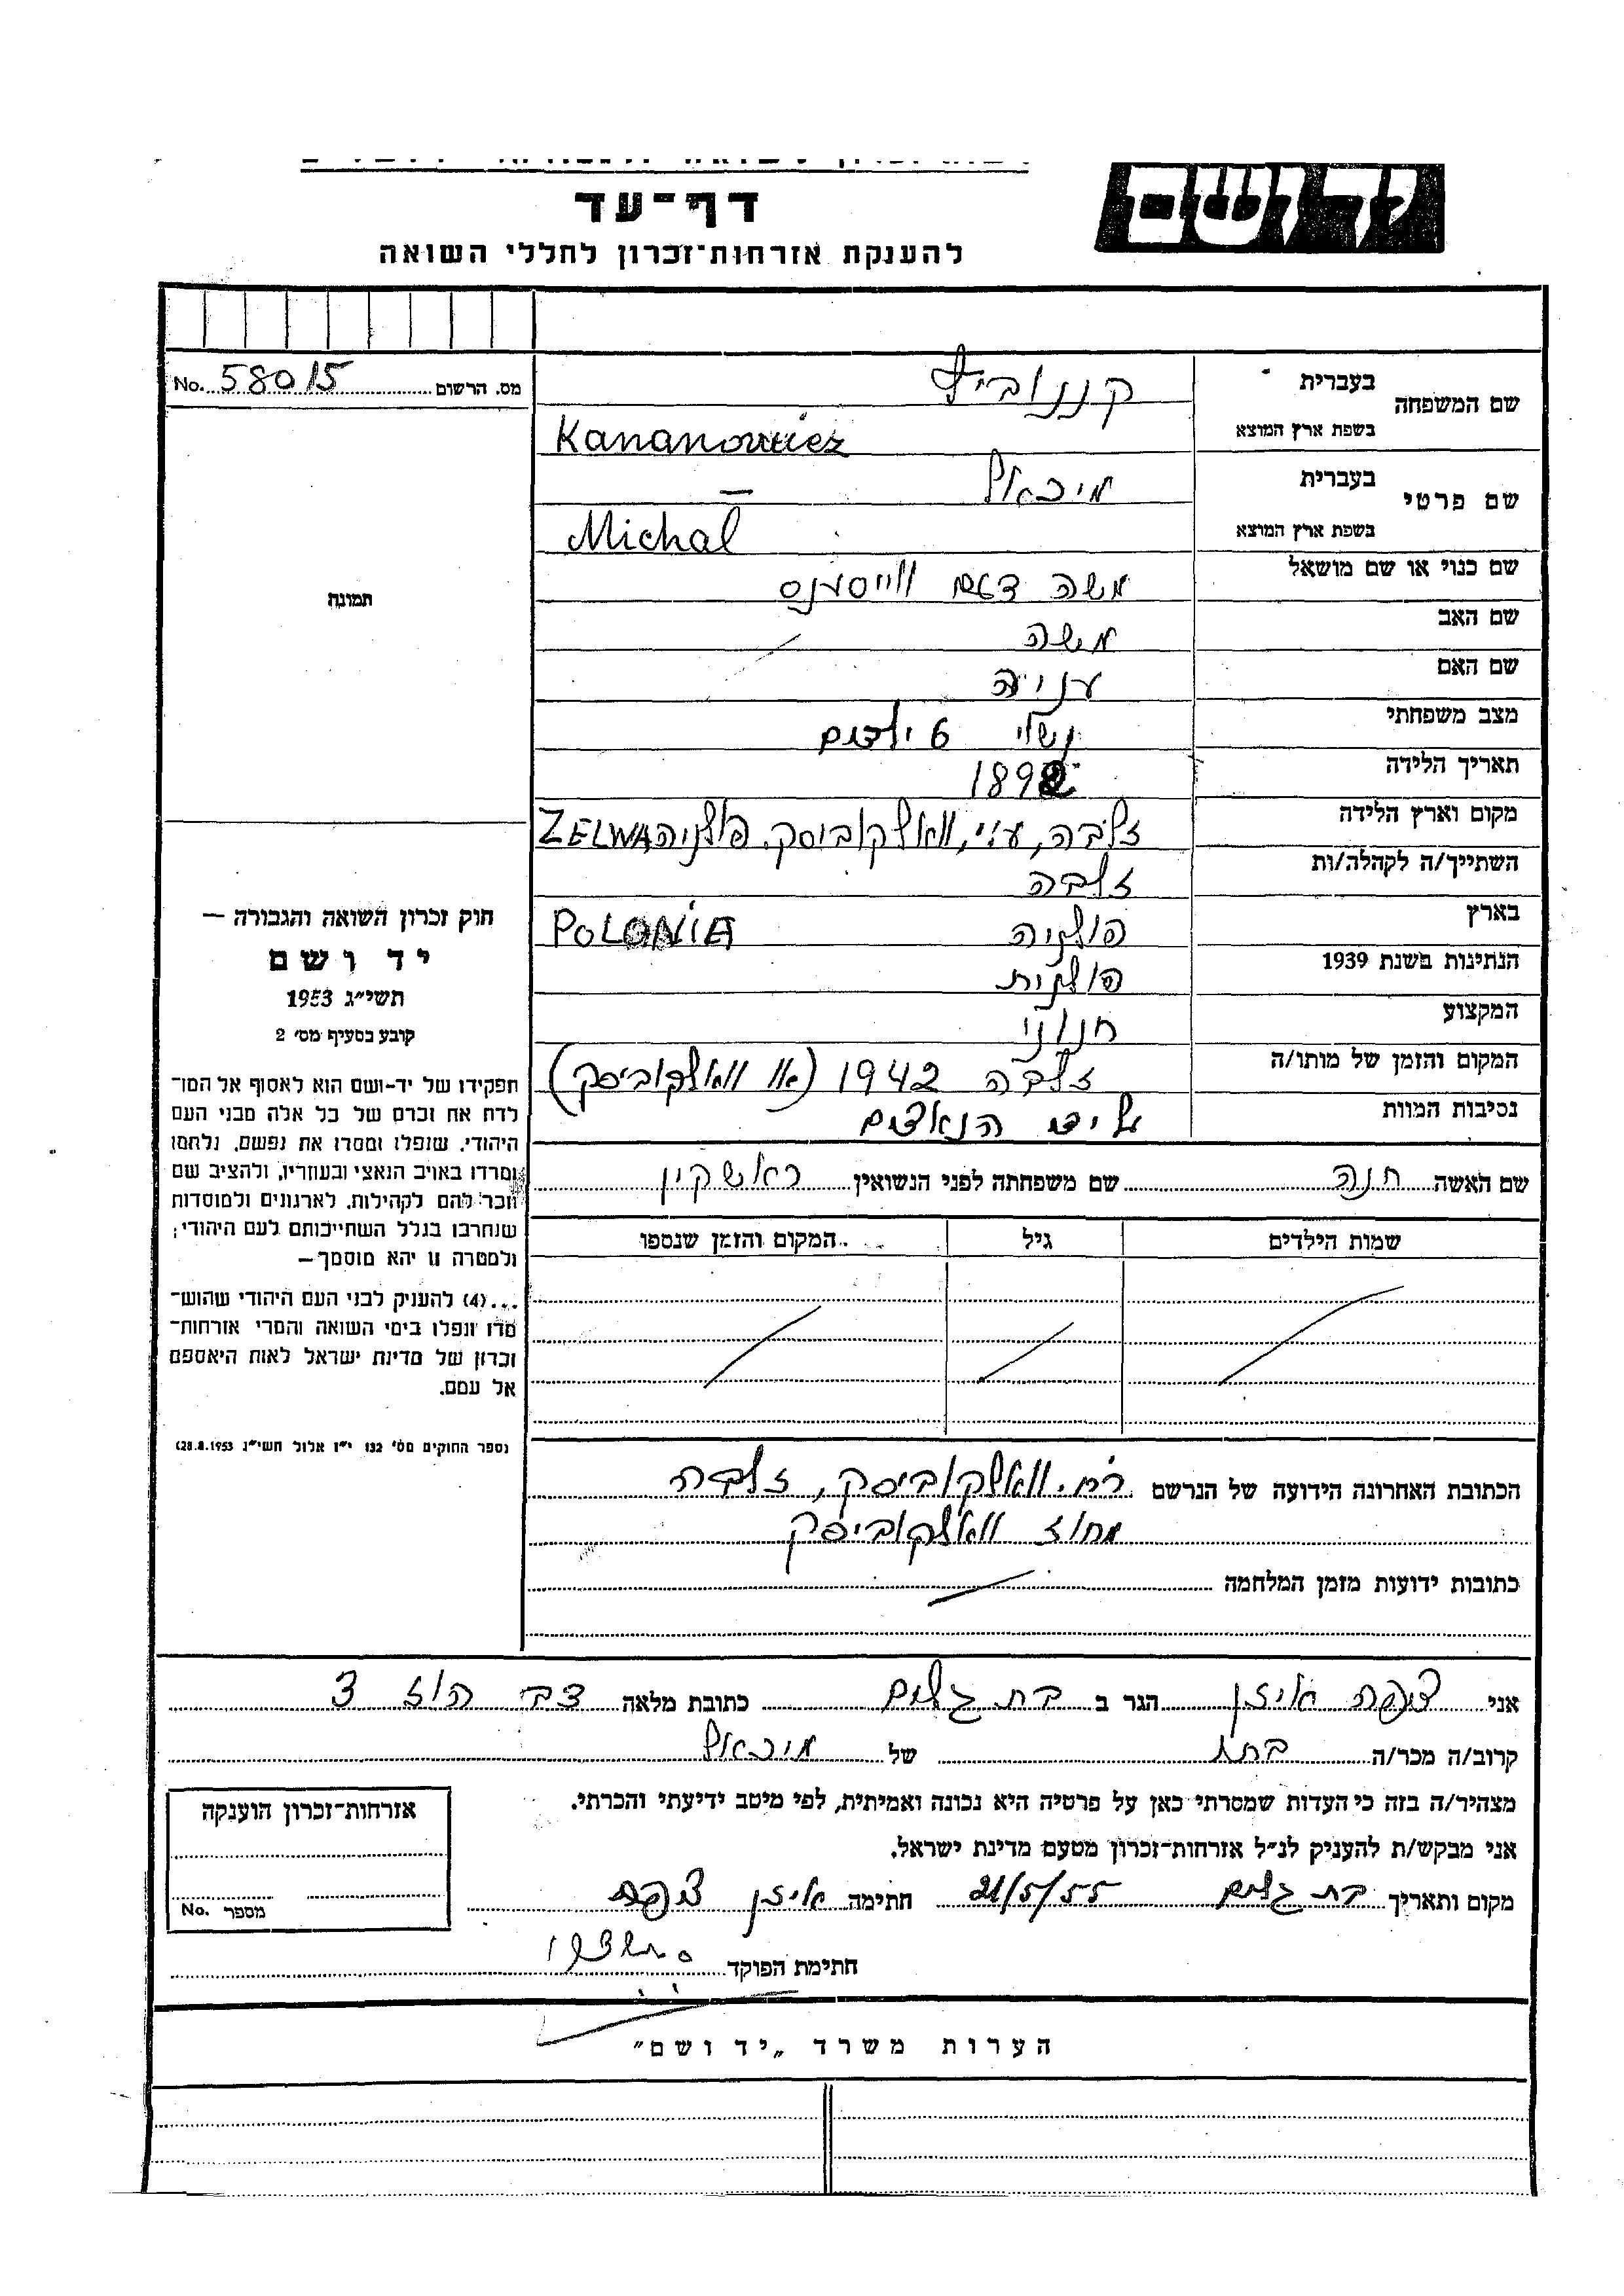 יד ושם
דף-עד
להענקת אזרחות-זכרון לחללי השואה
מס. הרשום No. 58015
שם המשפחה בעברית קננוביץ
בשפת ארץ המוצא Kananowicz
שם פרטי בעברית מיכאל
בשפת ארץ המוצא Michal
שם כנוי או שם מושאל משה
שם האב משה
שם האם
מצב משפחתי נשוי 6 ילדים
תאריך הלידה 1892
מקום וארץ הלידה זלבה, ע"י וואלקוביסק, פולניה ZELWA
השתייך/ה לקהלה/ות זלבה
בארץ פולניה POLONIA
הנתינות בשנת 1939 פולנית
המקצוע חנוני
המקום והזמן של מותו/ה זלבה 1942 (או וואלקוביסק)
נסיבות המוות על ידי הנאצים
שם האשה חנה שם משפחתה לפני הנשואין ראשקין
שמות הילדים גיל המקום והזמן שנספו
הכתובת האחרונה הידועה של הנרשם רח. וואלקוביסק, זלבה
מחוז וואלקוביסק
כתובות ידועות מזמן המלחמה
תמונה
חוק זכרון השואה והגבורה –
יד ושם
תשי"ג 1953
קובע בסעיף מס' 2
תפקידו של יד-ושם הוא לאסוף אל המו-
לדת את זכרם של כל אלה מבני העם
היהודי, שנפלו ומסרו את נפשם, נלחמו
ומרדו באויב הנאצי ובעוזריו, ולהציב שם
וזכר להם לקהילות, לארגונים ולמוסדות
שנחרבו בגלל השתייכותם לעם היהודי;
ולמטרה זו יהא מוסמך –
...(4) להעניק לבני העם היהודי שהוש-
מדו ונפלו בימי השואה והמרי אזרחות-
זכרון של מדינת ישראל לאות היאספם
אל עמם.
(ספר החוקים מס' 132 י"ז אלול תשי"ג 28.8.1953)
אני צפפה איזן הגר ב בת גלים כתובת מלאה צבי הוז 3
קרוב/ה מכר/ה בתו של מיכאל
מצהיר/ה בזה כי העדות שמסרתי כאן על פרטיה היא נכונה ואמיתית, לפי מיטב ידיעתי והכרתי.
אני מבקש/ת להעניק לנ"ל אזרחות-זכרון מטעם מדינת ישראל.
מקום ותאריך בת גלים 21/5/55 חתימה איזן
חתימת הפוקד
אזרחות-זכרון הוענקה
מספר No.
הערות משרד „יד ושם"